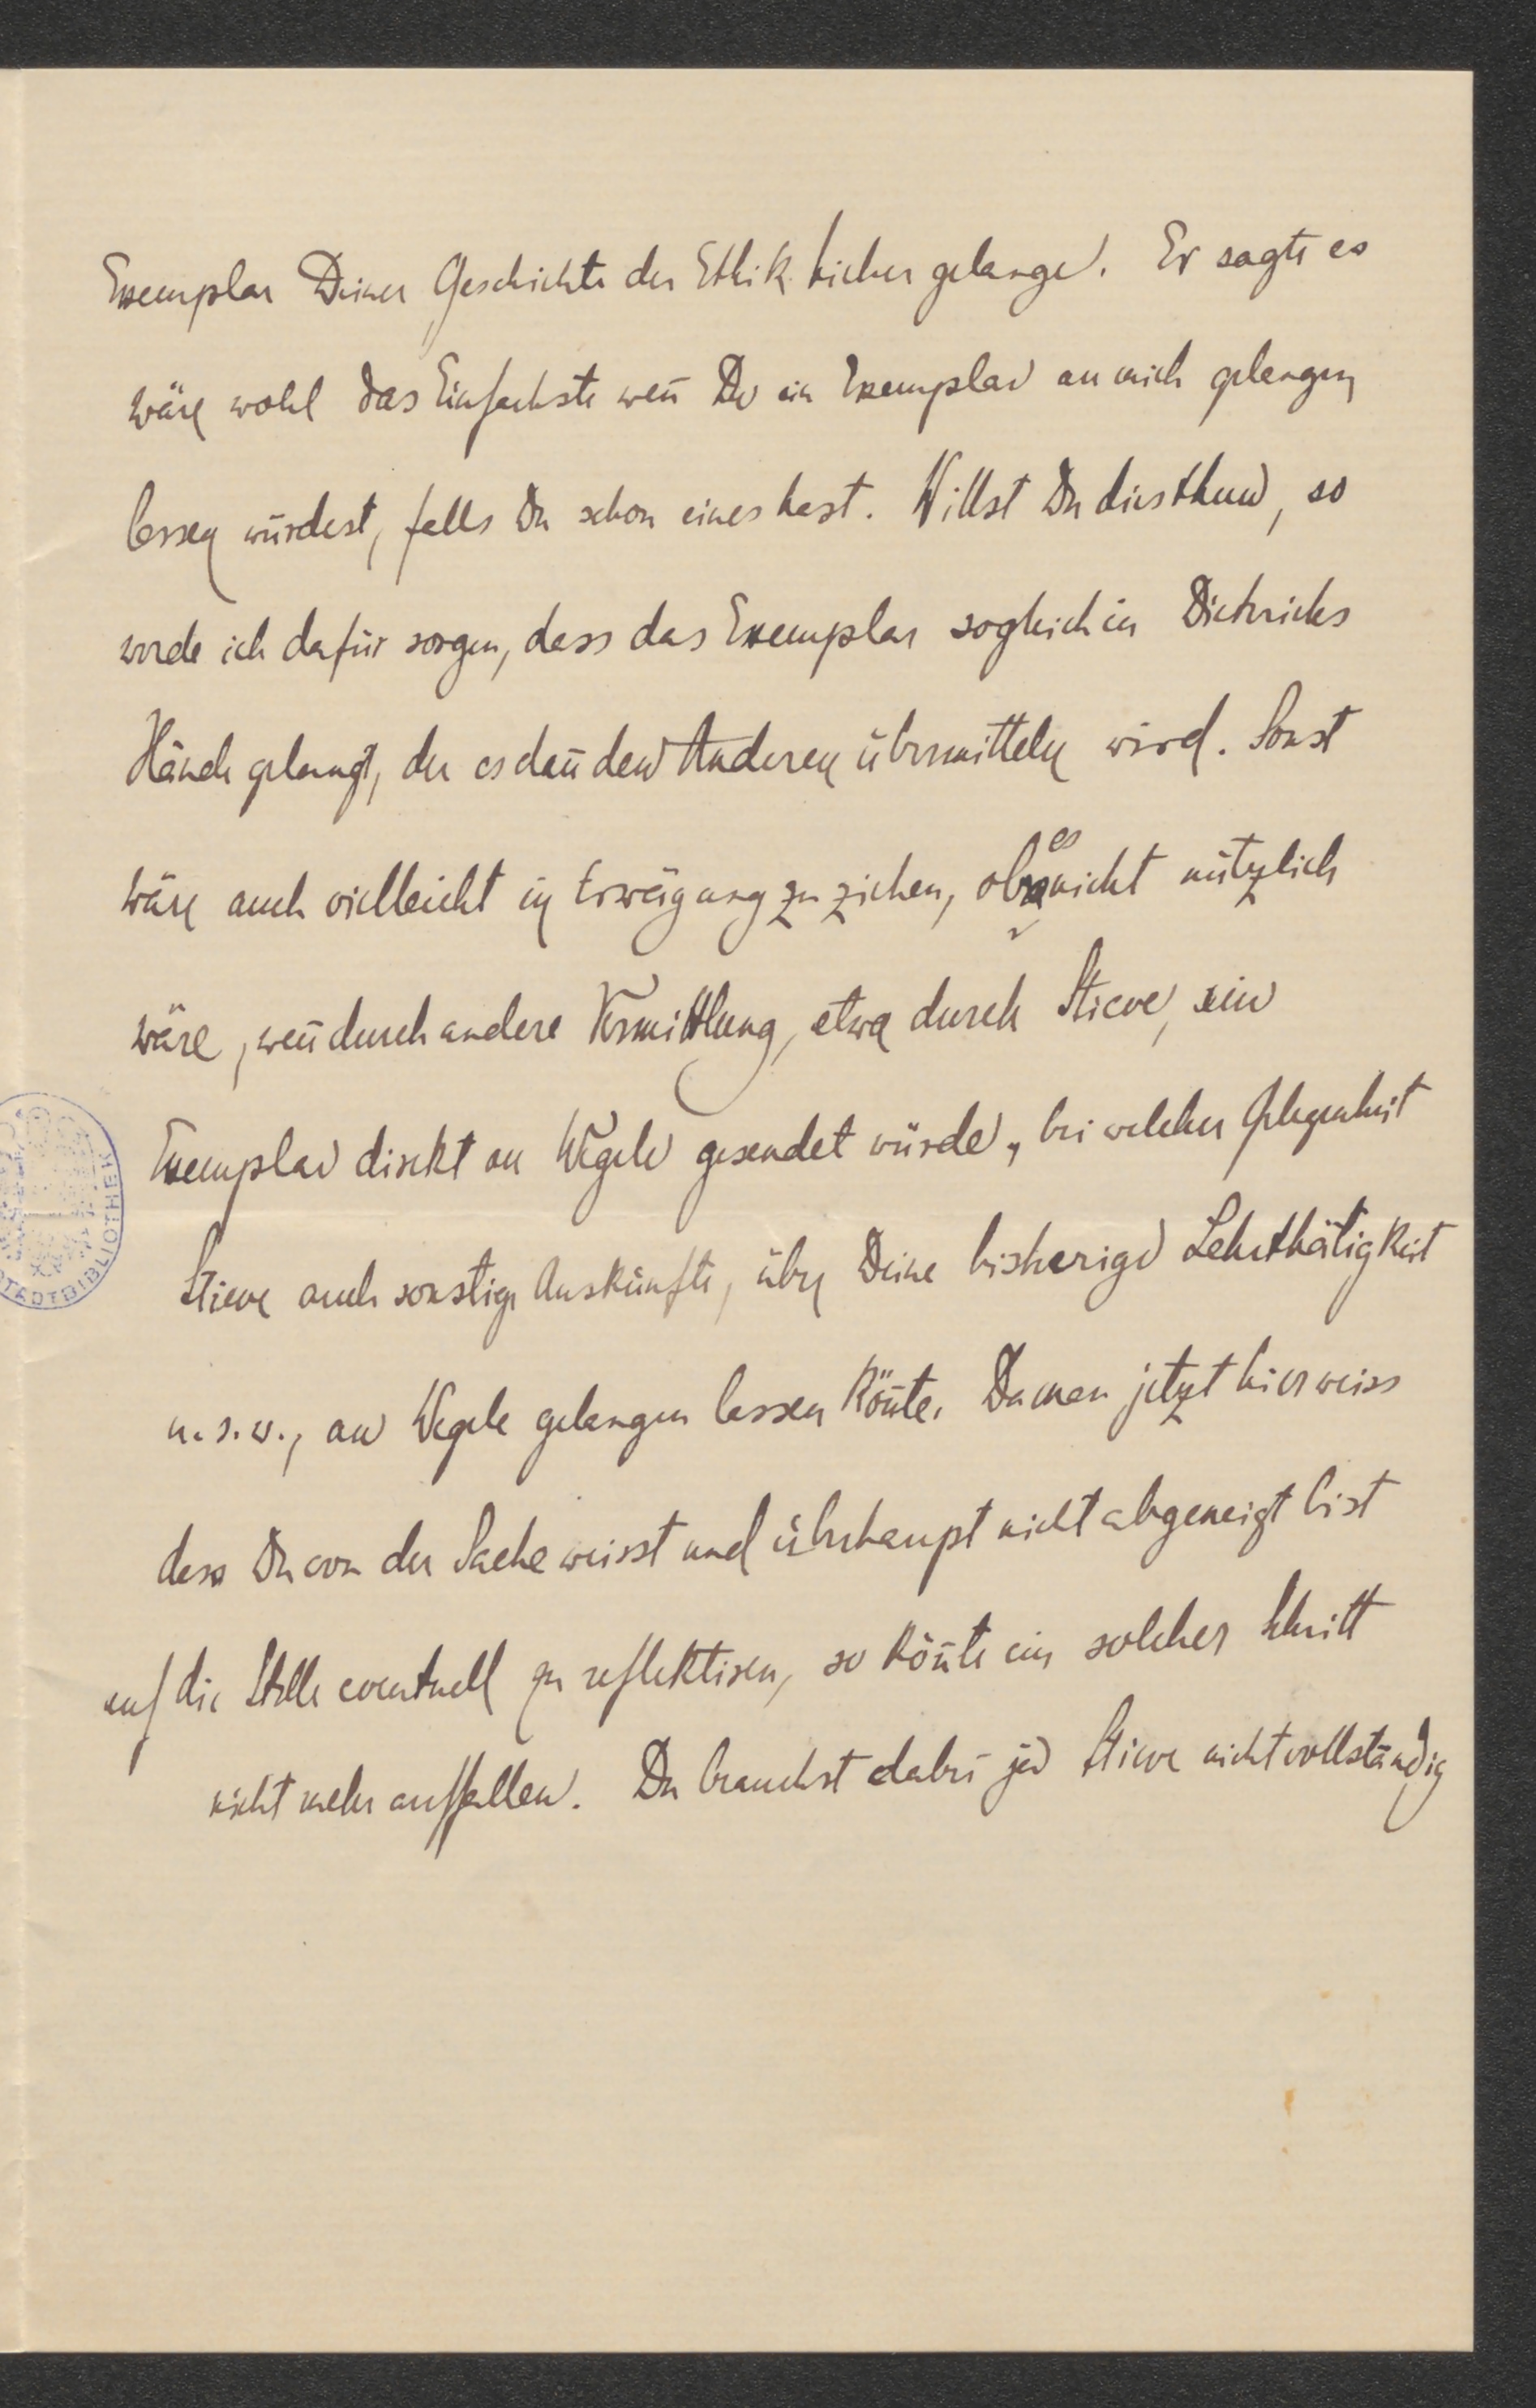 Exemplar Deiner Geschichte der Ethik hieher gelange. Er sagte es
wäre wohl das Einfachste weñ Du ein Exemplar an mich gelangen
lassen würdest, falls Du schon eines hast. Willst Du dies thun, so
werde ich dafür sorgen, dass das Exemplar sogleich in Dieterichs
Hände gelangt, der es dañ den Anderen übermitteln wird. Sonst
wäre auch vielleicht in Erwägung zu ziehen, ob es nicht nützlich
wäre, weñ durch andere Vermittlung, etwa durch Stieve, ein
Exemplar direkt an Wegele gesendet würde, bei welcher Gelegenheit
Stieve auch sonstige Auskünfte, über Deine bisherige Lehrthätigkeit
u. s. w., an Wegele gelangen lassen köñte. Da man jetzt hier weiss
dass Du von der Sache weisst und überhaupt nicht abgeneigt bist
auf die Stelle eventuell zu reflektiren, so köñte ein solcher Schritt
nicht mehr auffallen. Du brauchst dabei ja Stieve nicht vollständig
STADTBIBLIOTHEK